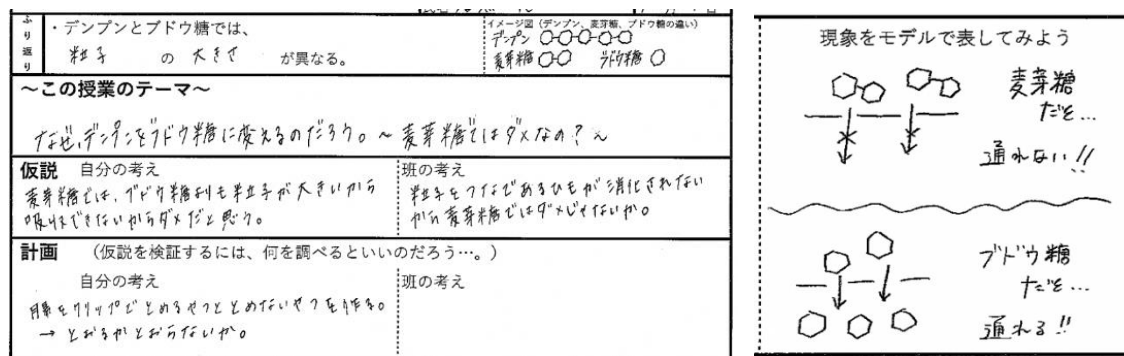 ふり返り
・デンプンとブドウ糖では、
粒子 の 大きさ が異なる。
イメージ図（デンプン、麦芽糖、ブドウ糖の違い）
デンプン
麦芽糖 ブドウ糖
～この授業のテーマ～
なぜ、デンプンをブドウ糖に変えるのだろう。～麦芽糖ではダメなの？～
仮説 自分の考え
麦芽糖では、ブドウ糖よりも粒子が大きいから
吸収できないからダメだと思う。
班の考え
粒子をつないであるひもが消化されない
から麦芽糖ではダメじゃないか。
計画 （仮説を検証するには、何を調べるといいのだろう…。）
自分の考え
膜をクリップでとめるやつととめないやつを作る。
→ とおるかとおらないか。
班の考え
現象をモデルで表してみよう
麦芽糖
だと...
通れない!!
ブドウ糖
だと...
通れる!!